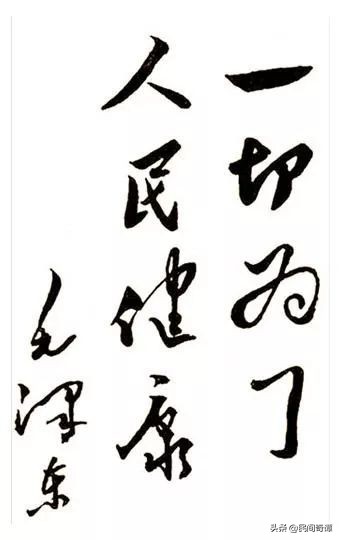 一切为了
人民健康
毛泽东
头条@民间奇谭